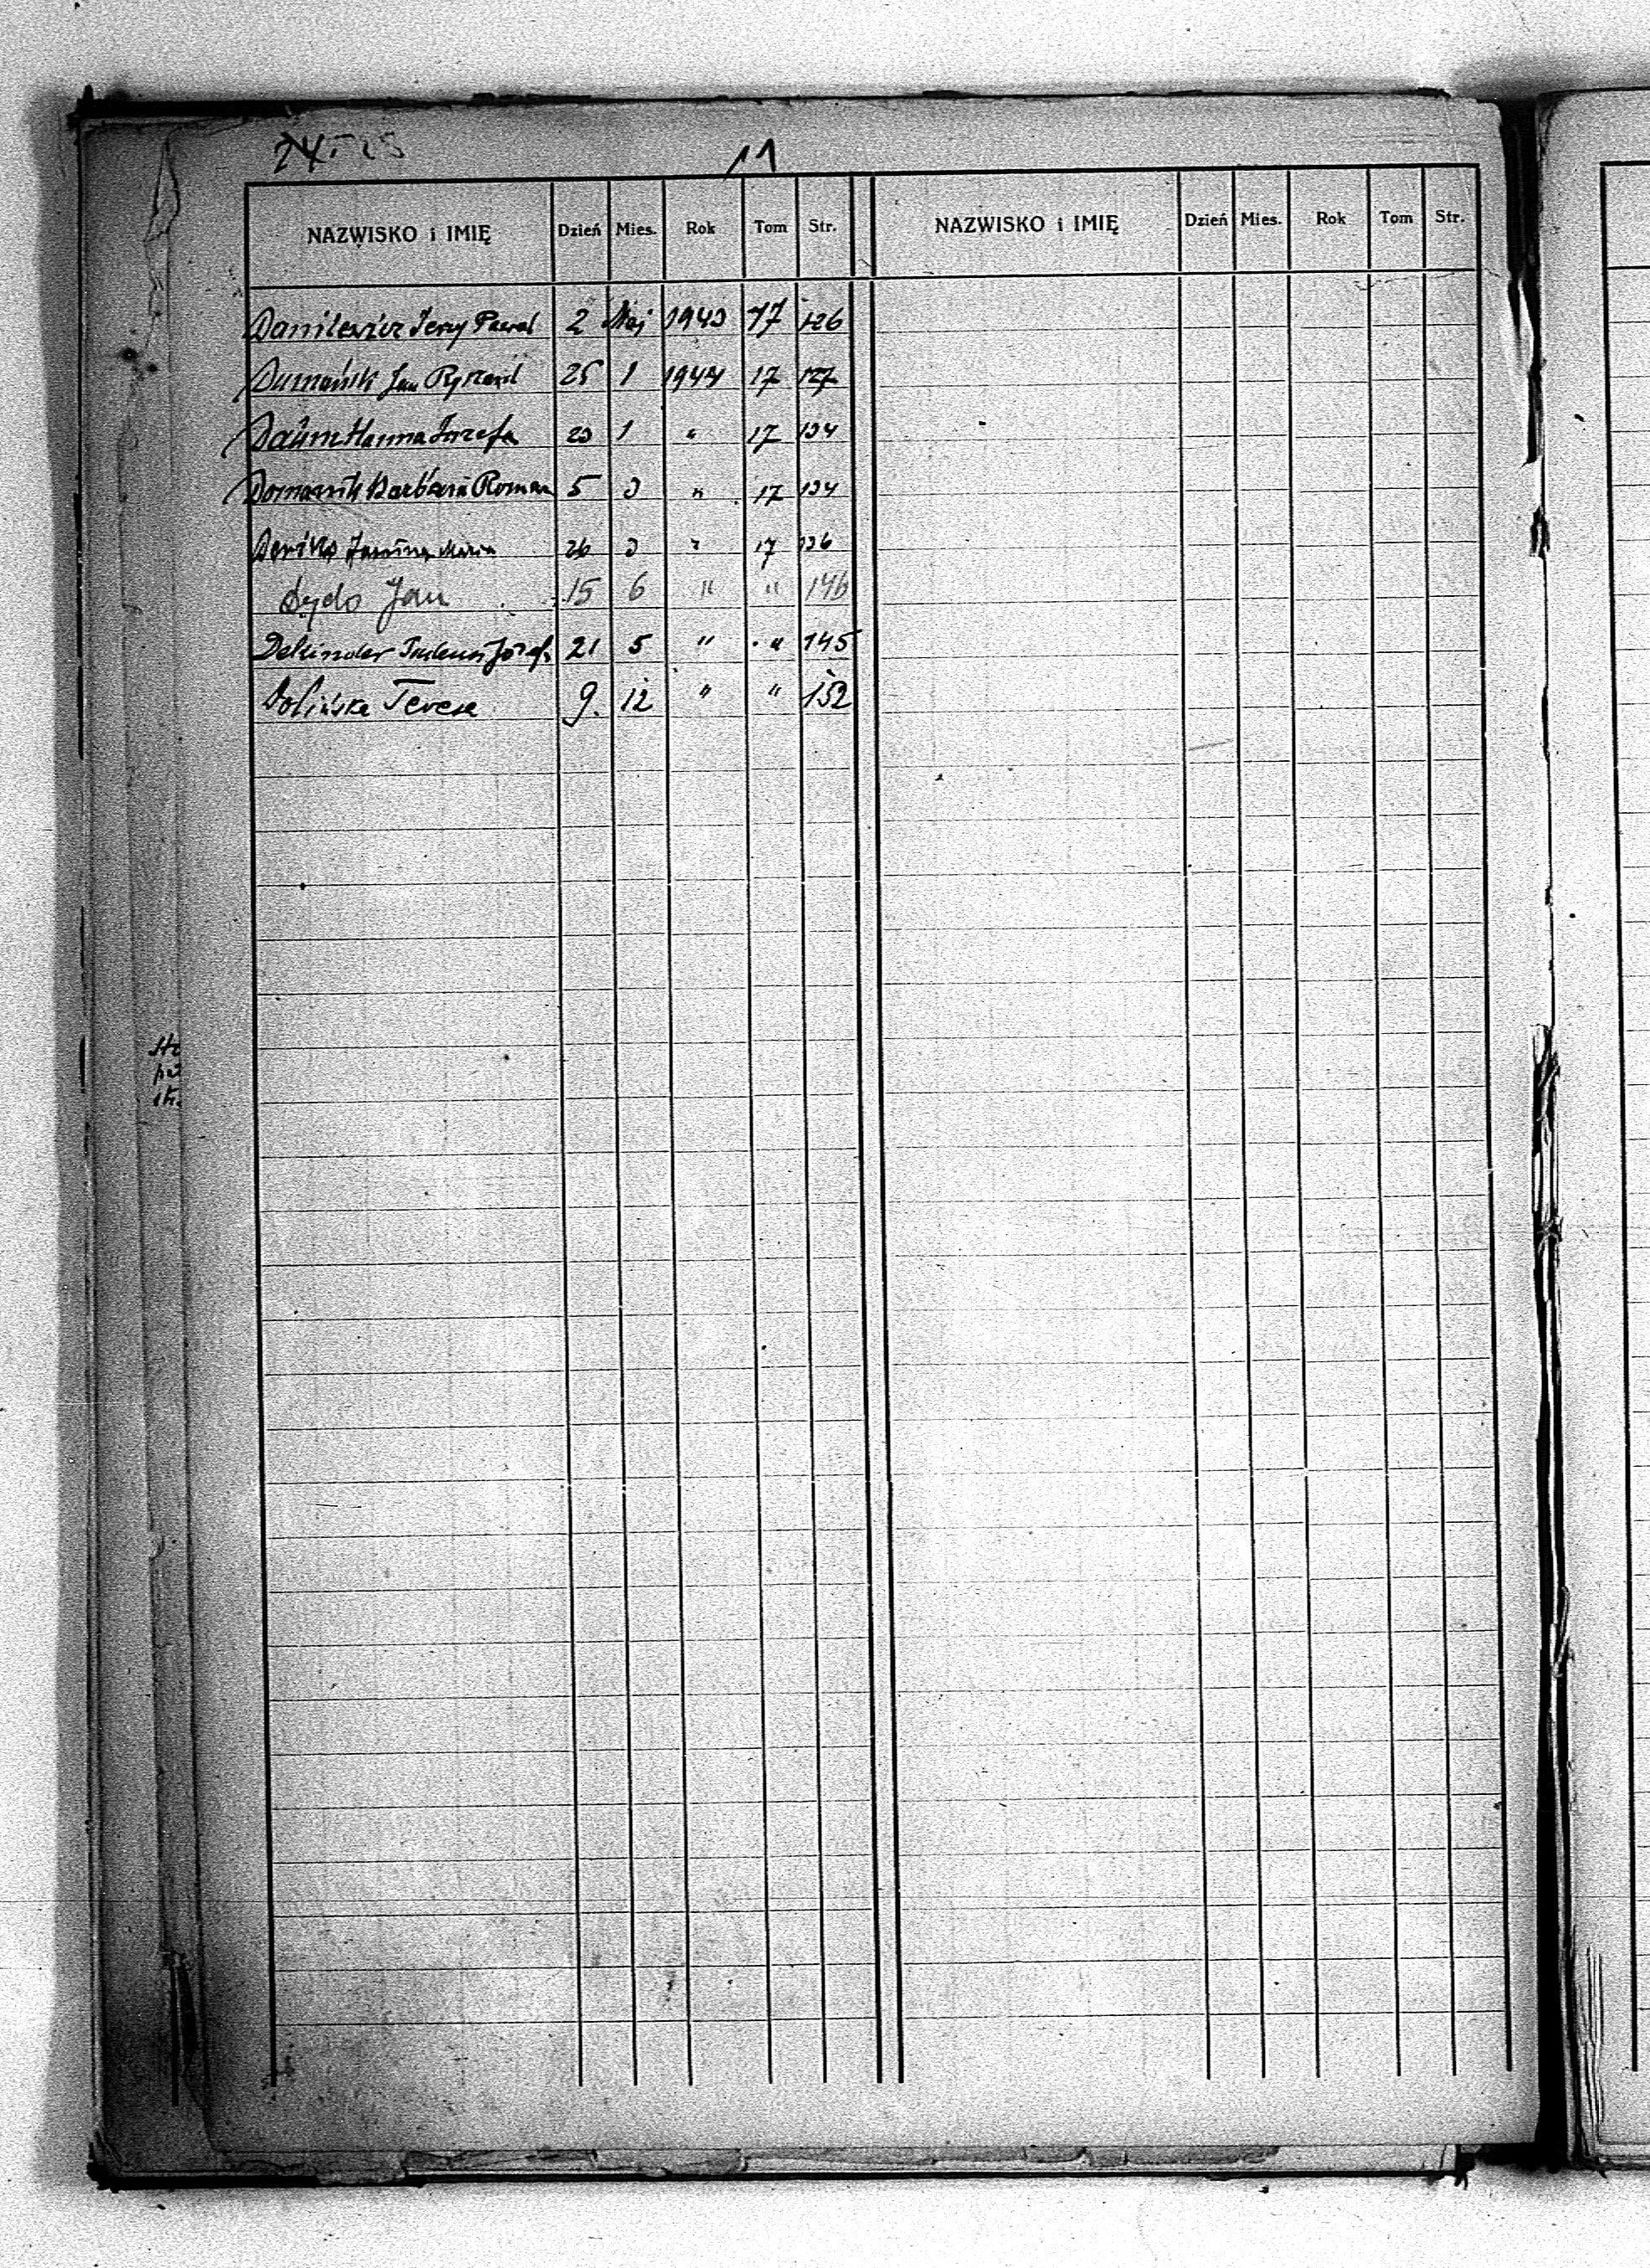 11
NAZWISKO i IMIĘ Dzień Mies. Rok Tom Str. NAZWISKO i IMIĘ Dzień Mies. Rok Tom Str.
Danilewicz Jerzy Paweł 2 Maj 1943 17 126
Jan Ryszard 25 1 1944 17 127
Daum Hanna Józefa 23 1 " 17 134
Domanik Barbara Roman 5 3 " 17 134
Janina Maria 26 3 " 17 136
Dydo Jan 15 6 " " 146
Tadeusz Józef 21 5 " " 145
Dolińska Teresa 9. 12 " " 152